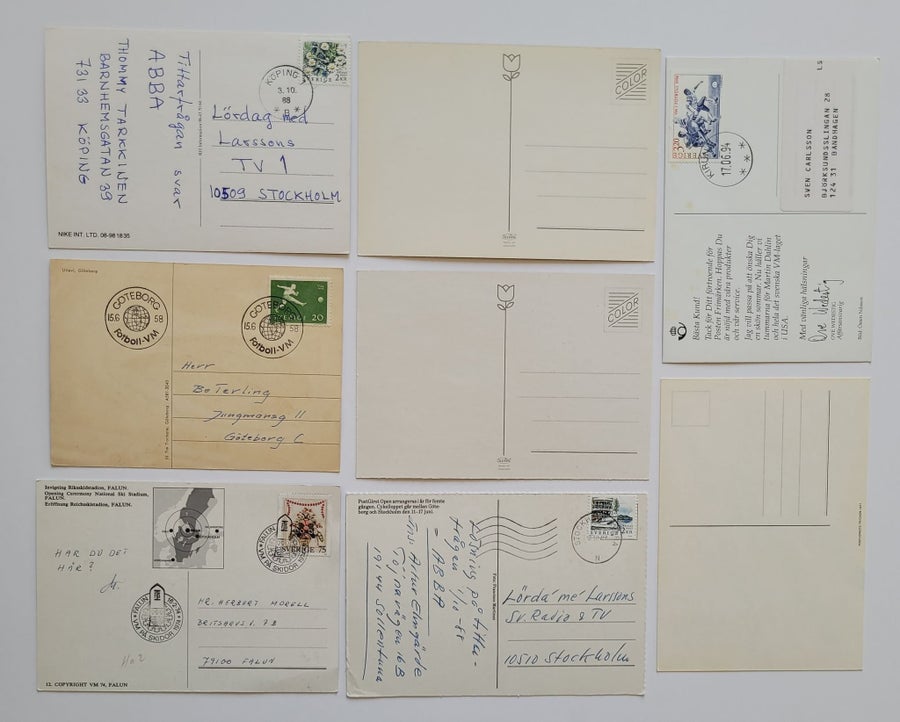 Tittarfrågan svar
ABBA
THOMMY TARKKINEN
BARNHEMSGATAN 39
731 33 KÖPING
KÖPING
3.10.
88
SVERIGE
Lördag med
Larssons
TV 1
10509 STOCKHOLM
NIKE INT. LTD. 08-98 18 35
COLOR
COLOR
SVERIGE
KIRUNA
17.06.94
LS
SVEN CARLSSON
BJÖRKSUNDSSLINGAN 28
124 31 BANDHAGEN
Bästa Kund!
Tack för Ditt förtroende för
Posten Frimärken. Hoppas Du
är nöjd med våra produkter
och vår service.
Jag vill passa på att önska Dig
en skön sommar. Nu håller vi
tummarna för Martin Dahlin
och hela det svenska VM-laget
i USA.
Med vänliga hälsningar
Affärsansvarig
Utteri, Göteborg
GÖTEBORG
15.6 58
Fotboll-VM
GÖTEBORG
15.6 58
Fotboll-VM
SVERIGE 20
Herr
Bo Terling
Jungmansg 11
Göteborg C
Invigning Riksskidstadion, FALUN.
Opening Ceremony National Ski Stadium,
FALUN.
Eröffnung Reichsskistadion, FALUN.
HAR DU DET
HÄR?
FALUN
VM PÅ SKIDOR 1974
SVERIGE 75
FALUN
VM PÅ SKIDOR 1974
HR. HERBERT MORELL
79100 FALUN
12. COPYRIGHT VM 74, FALUN
PostGirot Open arrangeras i år för femte
gången. Cykelloppet går mellan Göte-
borg och Stockholm den 11-17 juni.
Lösning på Titta-
frågen 1/10 -88
= ABBA
Töjnavägen 16B
191 44 Sollentuna
SVERIGE
Lörda' me' Larssons
Sv. Radio & TV
10510 Stockholm